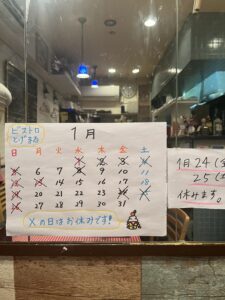 ビストロ
1月
日 月 火 水 木 金 土
1 2 3 4
5 6 7 8 9 10 11
12 13 14 15 16 17 18
19 20 21 22 23 24 25
26 27 28 29 30 31
Xの日はお休みです!
1月24(金
25(土
休みます。